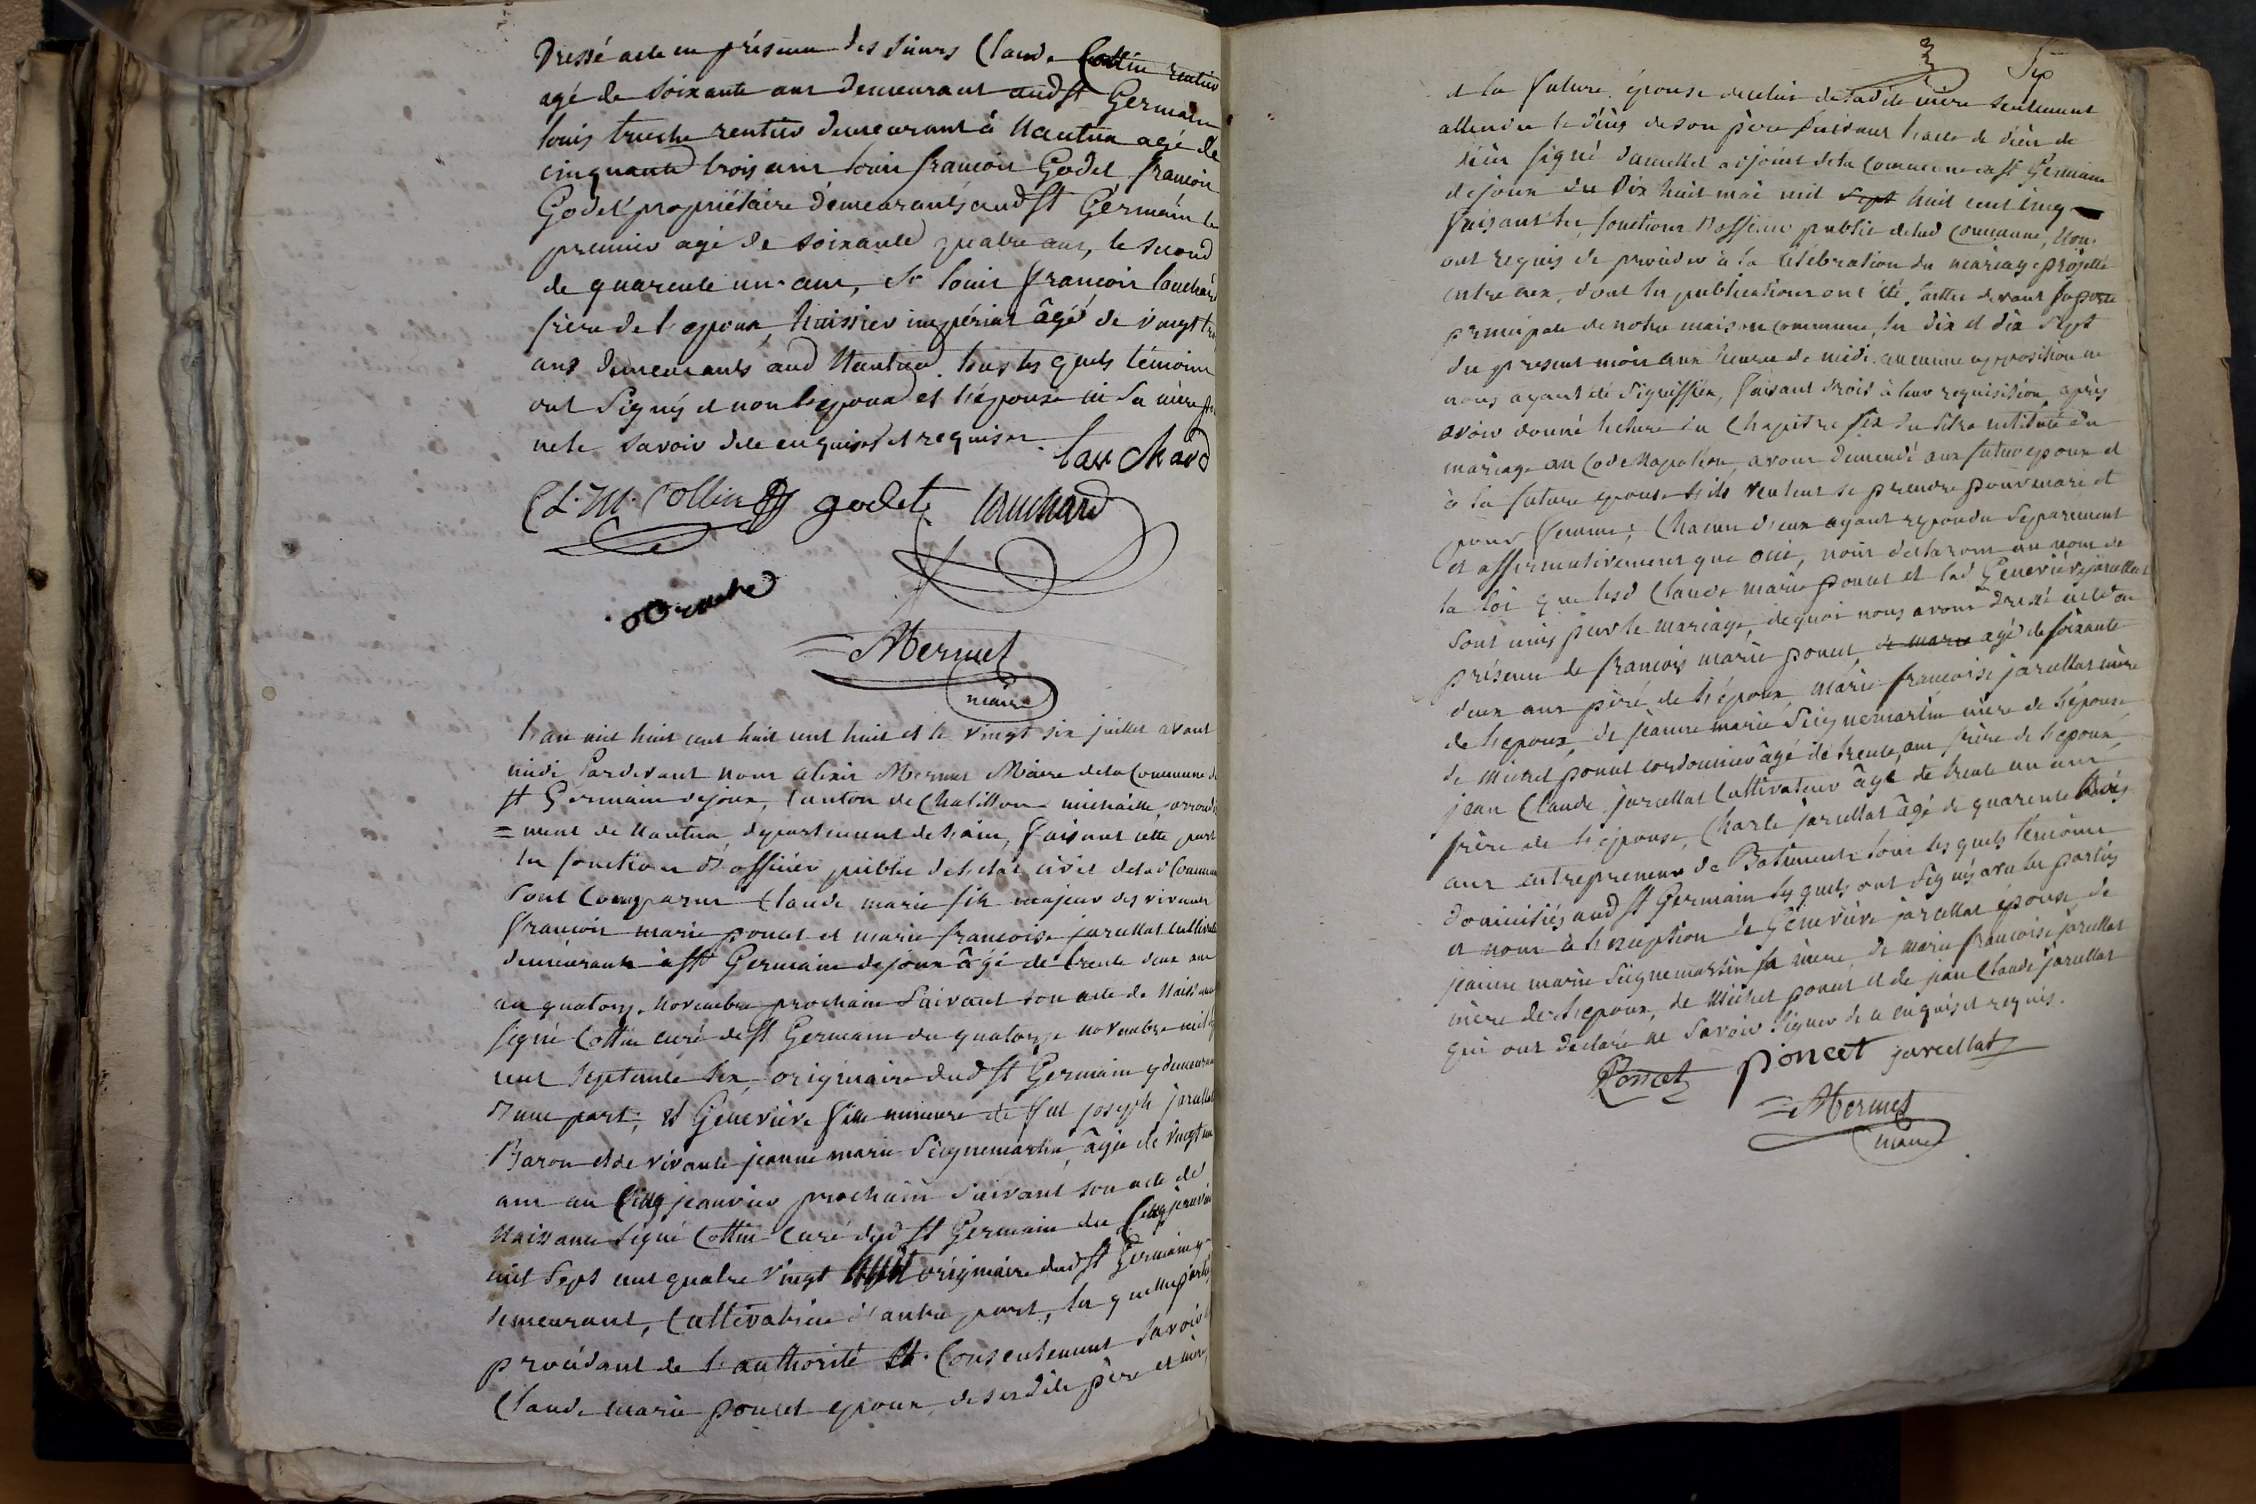 Dressé acte en présence des sieurs Claude Cottin rentier
agé de soixante ans demeurant aud st Germain
louis truche rentier demeurant à Nantua agé de
cinquante trois ans louis françois Godet françois
Godet propriétaire demeurants aud st Germain le
premier agé de soixante quatre ans, le second
de quarente un ans, et louis françois
frère de l'epoux, huissier impérial âgé de vingt
ans demeurants aud Nantua. tous les quels témoins
ont signés et non l'epoux et l'épouse ni sa mère
de ce enquis et requis
Cl. M. Cottin godet
Mermet
maire
l'an mil huit cent huit cent huit et le vingt six juillet avant
midi Pardevant nous alexis Mermet Maire de la Commune de
st Germain de joux, Canton de Chatillon michaille, arrondis
=ment de Nantua, département de l'ain, faisant cette part
les fonctions d'officier public de l'état civil de lad Commune
sont Comparus Claude marie fils majeur des vivants
françois marie poncet et marie françoise jarcellat
demeurants à st Germain de joux âgé de trente deux ans
au quatorze Novembre prochain suivant son acte de Naissance
signé Cottin curé de st Germain du quatorze novembre mil
cent septente six, originaire dud st Germain y demeurant
d'une part; et Geneviève fille mineure de feu joseph jarcellat
Baron et de vivante jeanne marie Seignemartin, âgée de vingt
ans au Cinq jeanvier prochain suivant son acte de
Naissance signé Cottin Curé dud st Germain du Cinq jeanvier
mil sept cent quatre vingt huit originaire dud st Germain y
demeurant, Cultivatrice d'autre part, les quelles parties
procédant de l'authorité et Consentement savoir
Claude marie poncet epoux, de sesdits père et mère,
et la future épouse de celui de ladite mère seulement
attendu le décès de son père suivant l'acte de décès de
signé adjoint de la Commune de st Germain
de joux du Dix huit mai mil sept huit cent cinq
faisant les fonctions d'officier public de lad Commune, Nous
ont requis de procéder à la célébration du mariage projetté
entre eux, dont les publications ont été faittes devant la porte
principale de notre maison commune, les dix et dix sept
du present mois aux heures de midi. aucunne opposition ne
nous ayant été signiffiée, faisant droit à leur requisition, après
avoir donné lecture du Chapitre six du titre intitulé du
mariage au Code Napoléon, avons demandé aux futur epoux et
à la future epouse s'ils veulent se prendre pour mari et
pour femme; Chacun d'eux ayant repondu séparement
et affirmativement que oui, nous declarons au nom de
la loi que lesd Claude marie poncet et lad Geneviève jarcellat
sont unis par le mariage, de quoi nous avons dressé acte en
présence de françois marie poncet, agé de soixante
deux ans père de l'époux, marie françoise jarcellat mère
de l'epoux, de jeanne marie Seignemartin mère de l'épouse
de Michel poncet cordonnier âgé de trente ans frère de l'epoux,
jean Claude jarcellat Cultivateur âgé de trente un ans
frère de l'épouse, Charle jarcellat âgé de quarente trois
ans entrepreneur de Batiments tous les quels témoins
domiciliés aud st Germain les quels ont signés avec les parties
et nous à l'exception de Géneviève jarcellat épouse de
jeanne marie Seignemartin sa mère, de marie françoise jarcellat
mère de l'epoux, de Michel poncet et de jean Claude jarcellat
qui ont déclaré ne savoir signer de ce enquis et requis.
Poncet Poncet jarcellat
Mermet
maire